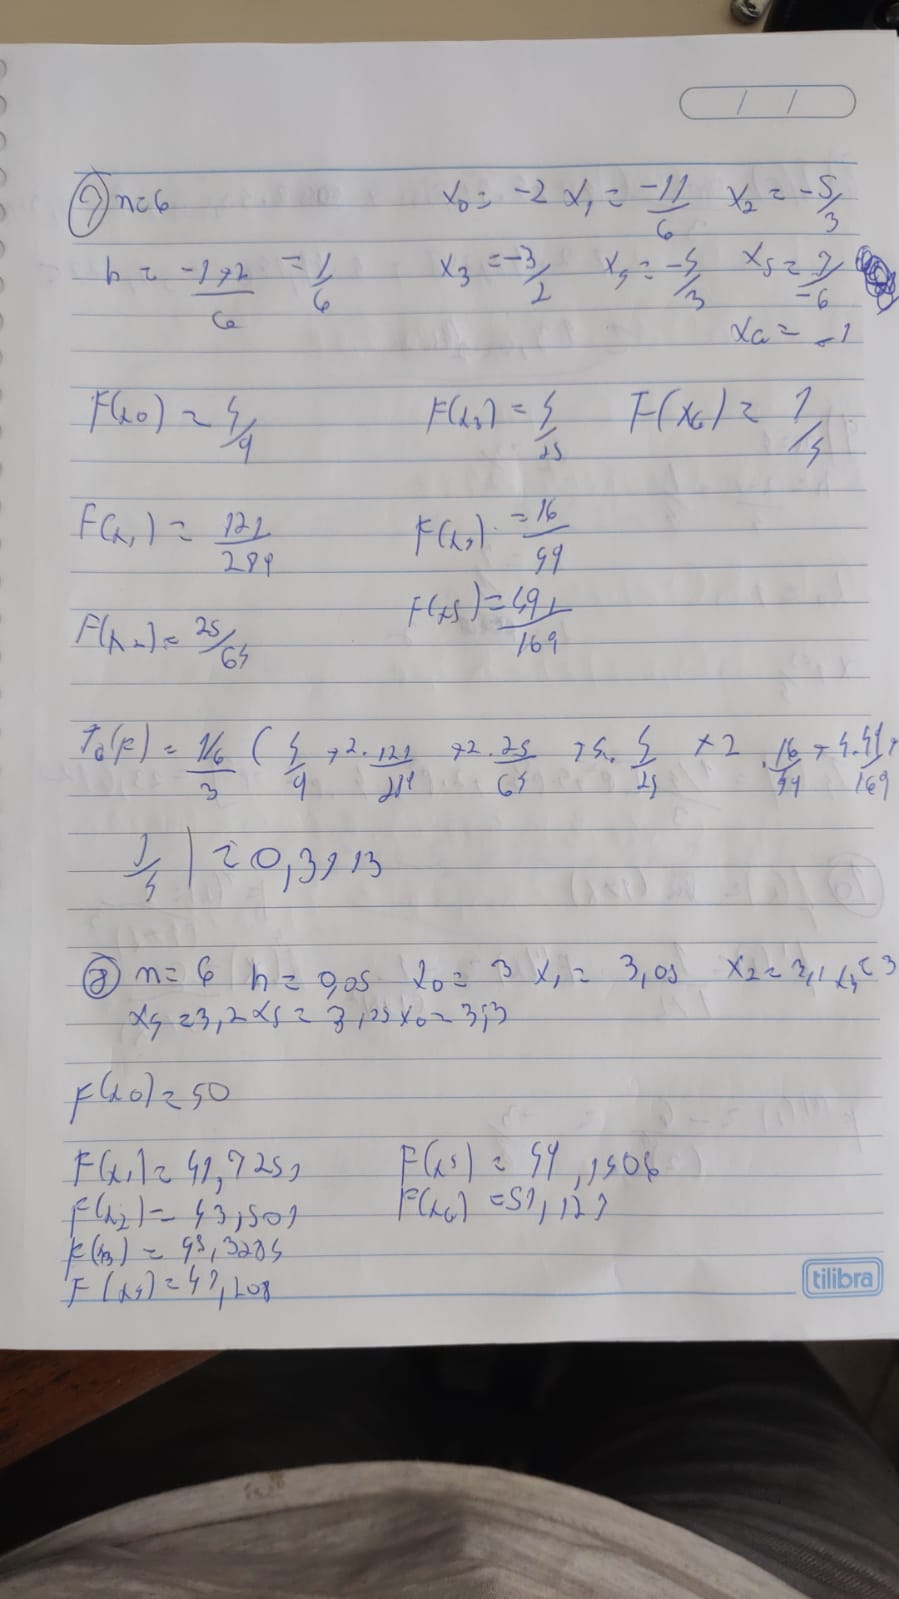 7) n=6 x0 = -2 x1 = -11/6 x2 = -5/3
h = -1+2/6 = 1/6 x3 = -3/2 x4 = -4/3 x5 = 7/-6
x6 = -1
F(x0) = 4/9 F(x3) = 4/25 F(x6) = 1/4
F(x1) = 121/289 F(x4) = 16/49
F(x2) = 25/64 F(x5) = 49/169
(F) = 1/6/3 ( 4/9 +2. 121/289 +2. 25/64 +4. + 2 . 16/49 + 4.49/169 +
1/4 ) = 0,3113
8) n= 6 h= 0,05 x0= 3 x1= 3,05 x2= 3,1 x3= 3
x4 = 3,2 x5 = 3,25 x6 = 3,3
F(x0) = 40
F(x1) = 41,7251 F(x5) = 49,1406
F(x2) = 43,501 F(x6) = 51,127
F(x3) = 45,3284
F(x4) = 47,208
tilibra